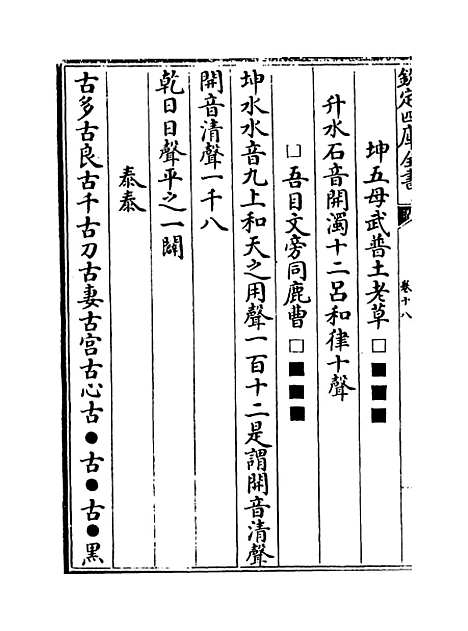 欽定四庫全書
卷十八
坤五母武普土老草□■■■
升水石音開濁十二呂和律十聲
□吾目文旁同鹿曹□■■■
坤水水音九上和天之用聲一百十二是謂開音清聲
開音清聲一千八
乾日日聲平之一闢
泰泰
古多古良古千古刀古妻古宫古心古●古●古●黑